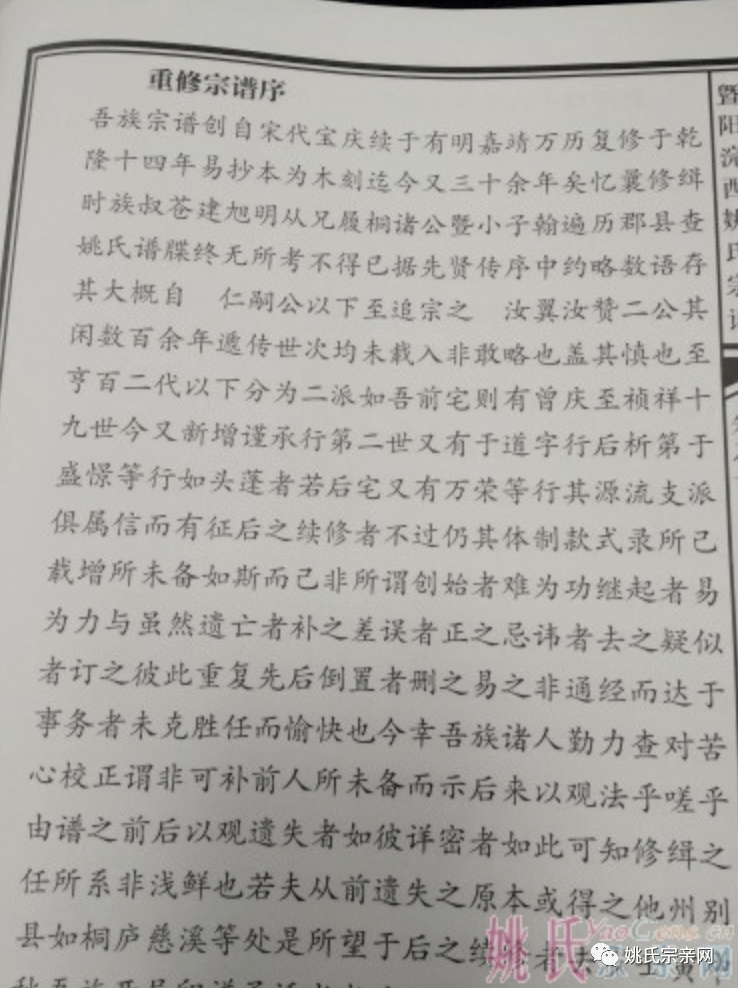 重修宗谱序
吾族宗谱创自宋代宝庆续于有明嘉靖万历复修于乾
隆十四年易抄本为木刻迄今又三十余年矣忆曩修缉
时族叔苍建旭明从兄履桐诸公暨小子翰遍历郡县查
姚氏谱牒终无所考不得已据先贤传序中约略数语存
其大概自 仁嗣公以下至追宗之 汝翼汝赞二公其
闲数百余年遞传世次均未载入非敢略也盖其慎也至
亨百二代以下分为二派如吾前宅则有曾庆至祯祥十
九世今又新增谨承行第二世又有于道字行后析第于
盛憬等行如头蓬者若后宅又有万荣等行其源流支派
俱属信而有征后之续修者不过仍其体制款式录所已
载增所未备如斯而已非所谓创始者难为功继起者易
为力与虽然遗亡者补之差误者正之忌讳者去之疑似
者订之彼此重复先后倒置者删之易之非通经而达于
事务者未克胜任而愉快也今幸吾族诸人勤力查对苦
心校正谓非可补前人所未备而示后来以观法乎嗟乎
由谱之前后以观遗失者如彼详密者如此可知修缉之
任所系非浅鲜也若夫从前遗失之原本或得之他州别
县如桐庐慈溪等处是所望于后之续修者
暨阳浣西姚氏宗谱
姚氏 YaoCeng.cn
姚氏宗亲网